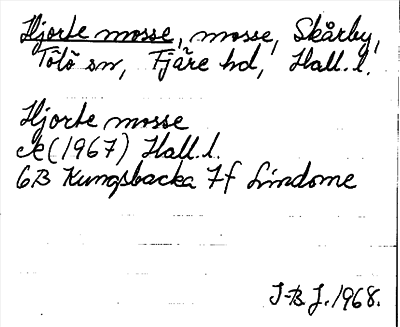 Hjorte mosse, mosse, Skårby,
Tölö sn, Fjäre hd, Hall.l.
Hjorte mosse
ek (1967) Hall.l.
6B Kungsbacka 7f Lindome
J-B.J. 1968.